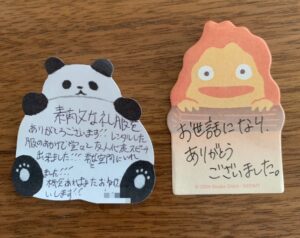 素敵な礼服を
ありがとうございます!! レンタルした
服のおかげで堂々と友人代表スピーチ
出来ました!!! 空間にいれ
ました!!!
機会があればまたお
いします!!
お世話になり、
ありがとう
ございました。
© 2004 Studio Ghibli